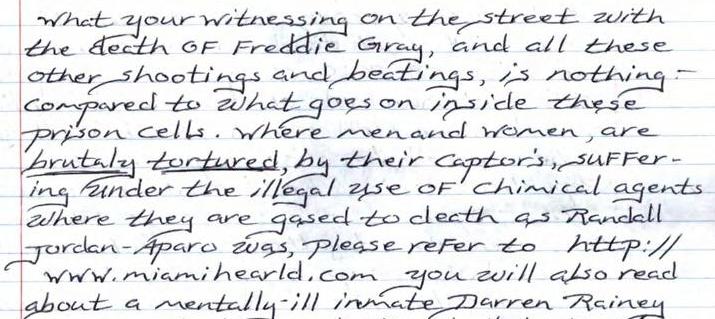 what your witnessing on the street with
the death OF Freddie Gray, and all these
other shootings and beatings, is nothing -
compared to what goes on inside these
prison cells. Where men and women, are
brutaly tortured, by their captor's, suffer-
ing under the illegal use OF chimical agents
where they are gased to death as Randall
Jordan-Aparo was, please refer to http://
www.miamihearld.com you will also read
about a mentally-ill inmate Darren Rainey